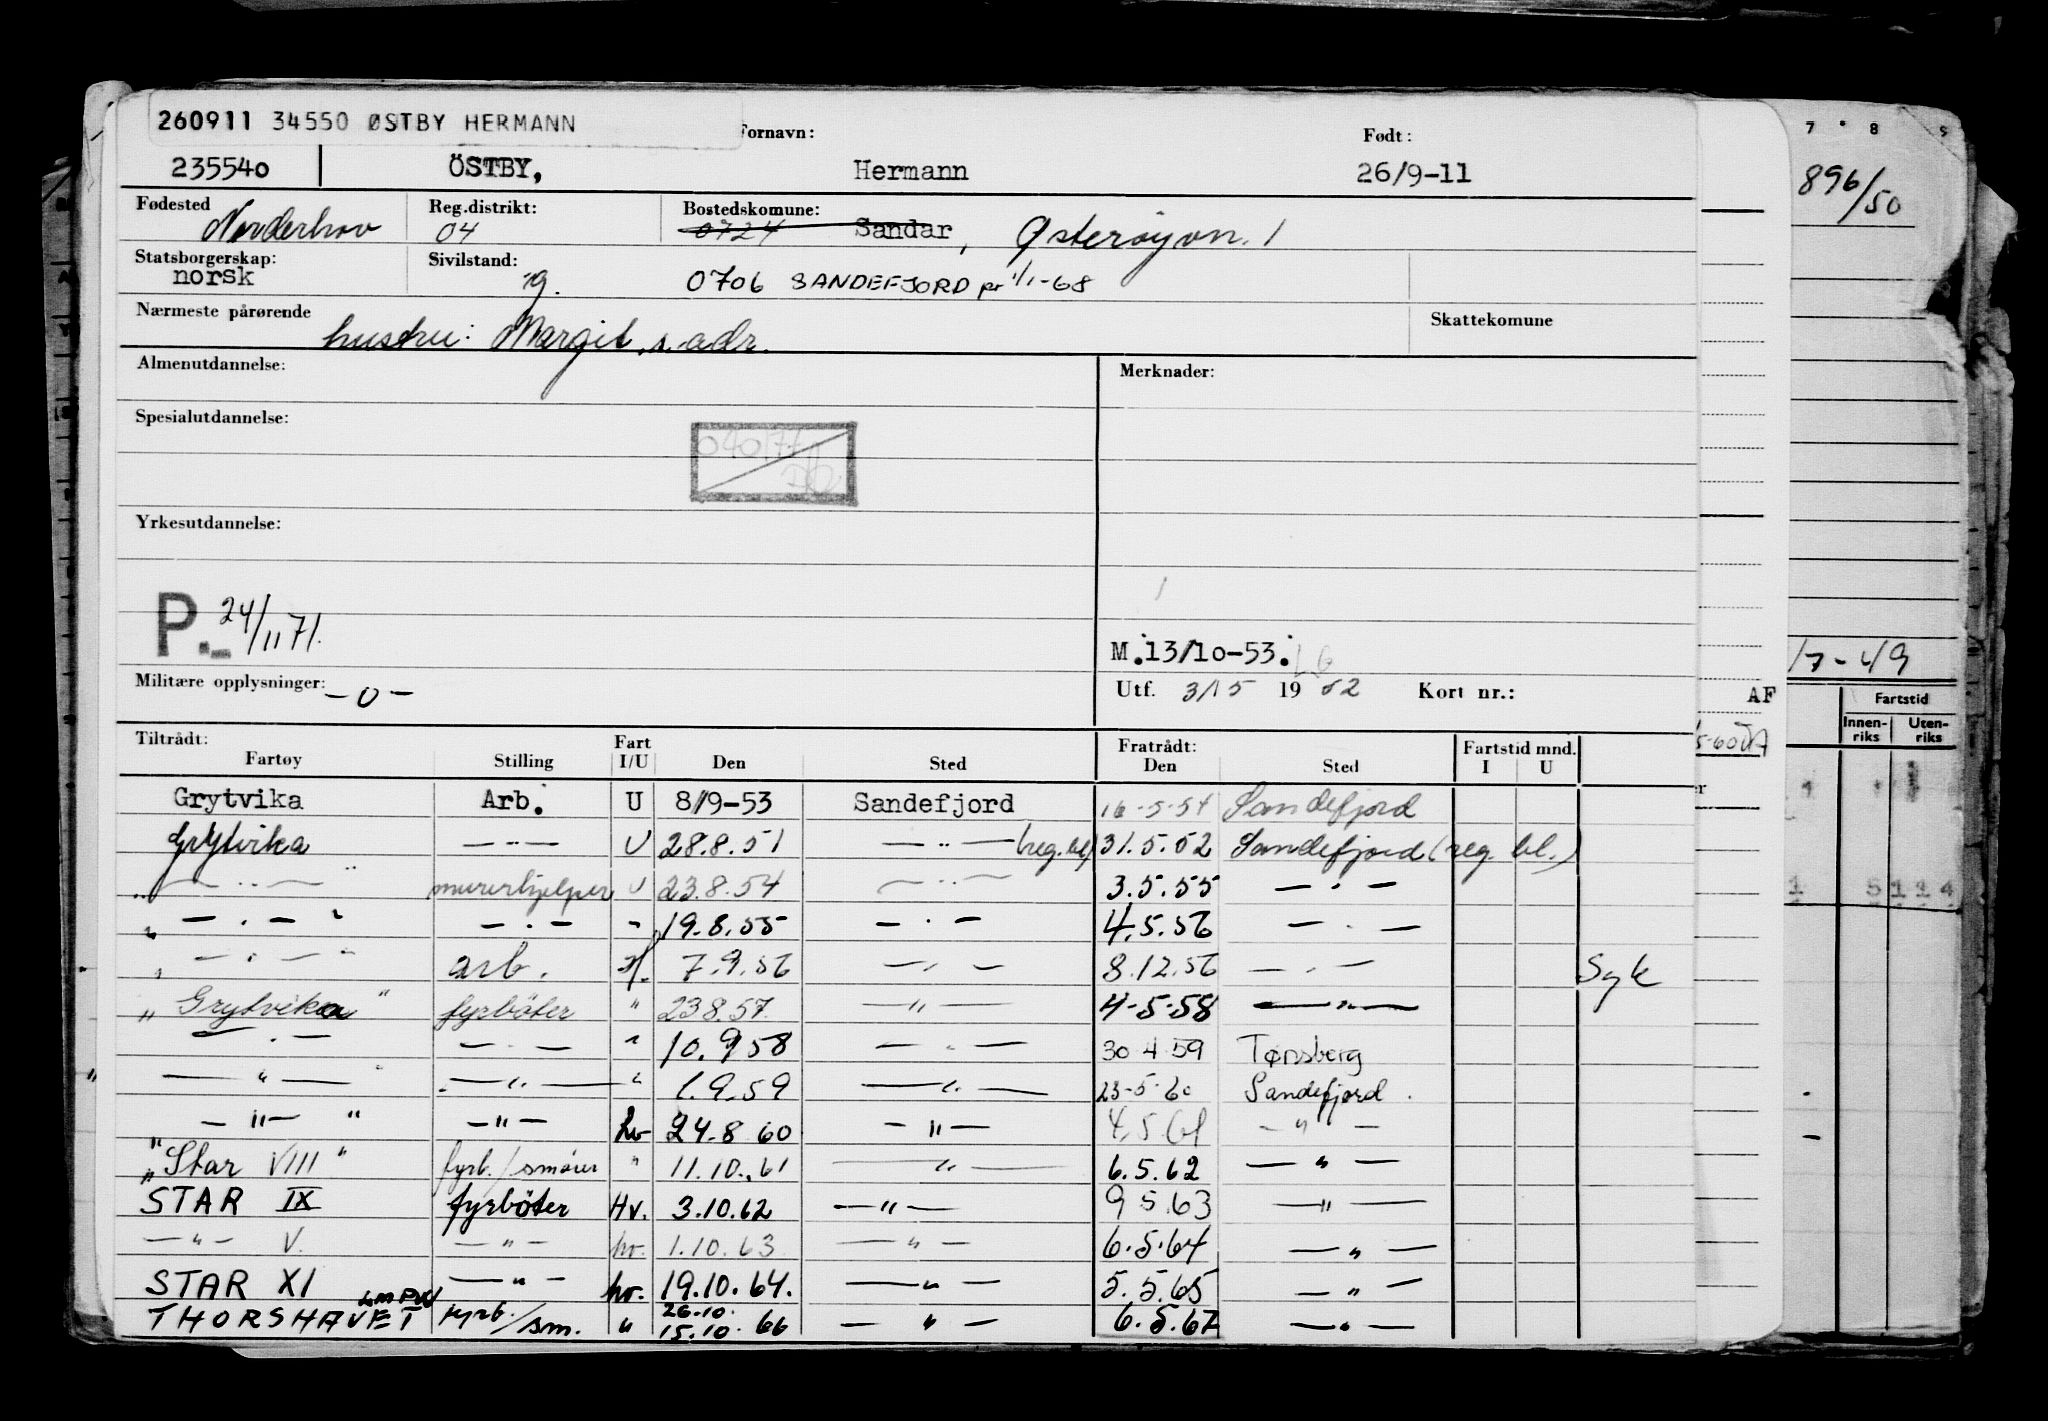 260911 34550 ØSTBY HERMANN
Fornavn: Født:
235540 ÖSTBY, Hermann 26/9-11
Fødested Reg.distrikt: Bostedskomune:
Norderhov 04 0724 Sandar, Østerøyvn. 1
Statsborgerskap: Sivilstand:
norsk g. 0706 SANDEFJORD pr 1/1-68
Nærmeste pårørende Skattekomune
hustru: Margit, s. adr.
Almenutdannelse: Merknader:
Spesialutdannelse:
040177
Yrkesutdannelse:
P. 24/11 71.
M.13/10-53.
Militære opplysninger: -0- Utf. 3/15 1952 Kort nr.:
Tiltrådt: Fart Fratrådt: Fartstid mnd.
Fartøy Stilling I/U Den Sted Den Sted I U
Grytvika Arb. U 8/9-53 Sandefjord 16-5-54 Sandefjord
Grytvika — " — U 28.8.51 — " — (reg.bl) 31.5.52 Sandefjord (reg. bl.)
" — " — " murerhjelper U 23.8.54 — " — 3.5.55 — " —
" — " — " — " — " 19.8.55 — " — 4.5.56 — " —
" — " — " arb. 7.9.56 — " — 8.12.56 — " — Syk
" Grytvika " fyrböter " 23.8.57 — " — 4-5-58 — " —
— " — — " — " 10.9.58 — " — 30 4 59 Tønsberg
" — " — " — " — " 1.9.59 — " — 23-5-60 Sandefjord.
" — " — " — " — hv 24.8 60 — " — 4.5.61 — " —
" Star VIII " fyrb./smører " 11.10.61 — " — 6.5.62 — " —
STAR IX fyrböter Hv. 3.10.62 — " — 9 5.63 — " —
— " — V. — " — hv. 1.10.63 — " — 6.5.64 — " —
STAR XI — " — hv. 19.10.64. — " — 5.5.65 — " —
THORSHAVET fyrb./sm. " 26.10. 15.10.66 — " — 6.5.67 — " —
7 8
896/50
7-49
AF
Fartstid
Innen-riks Uten-riks